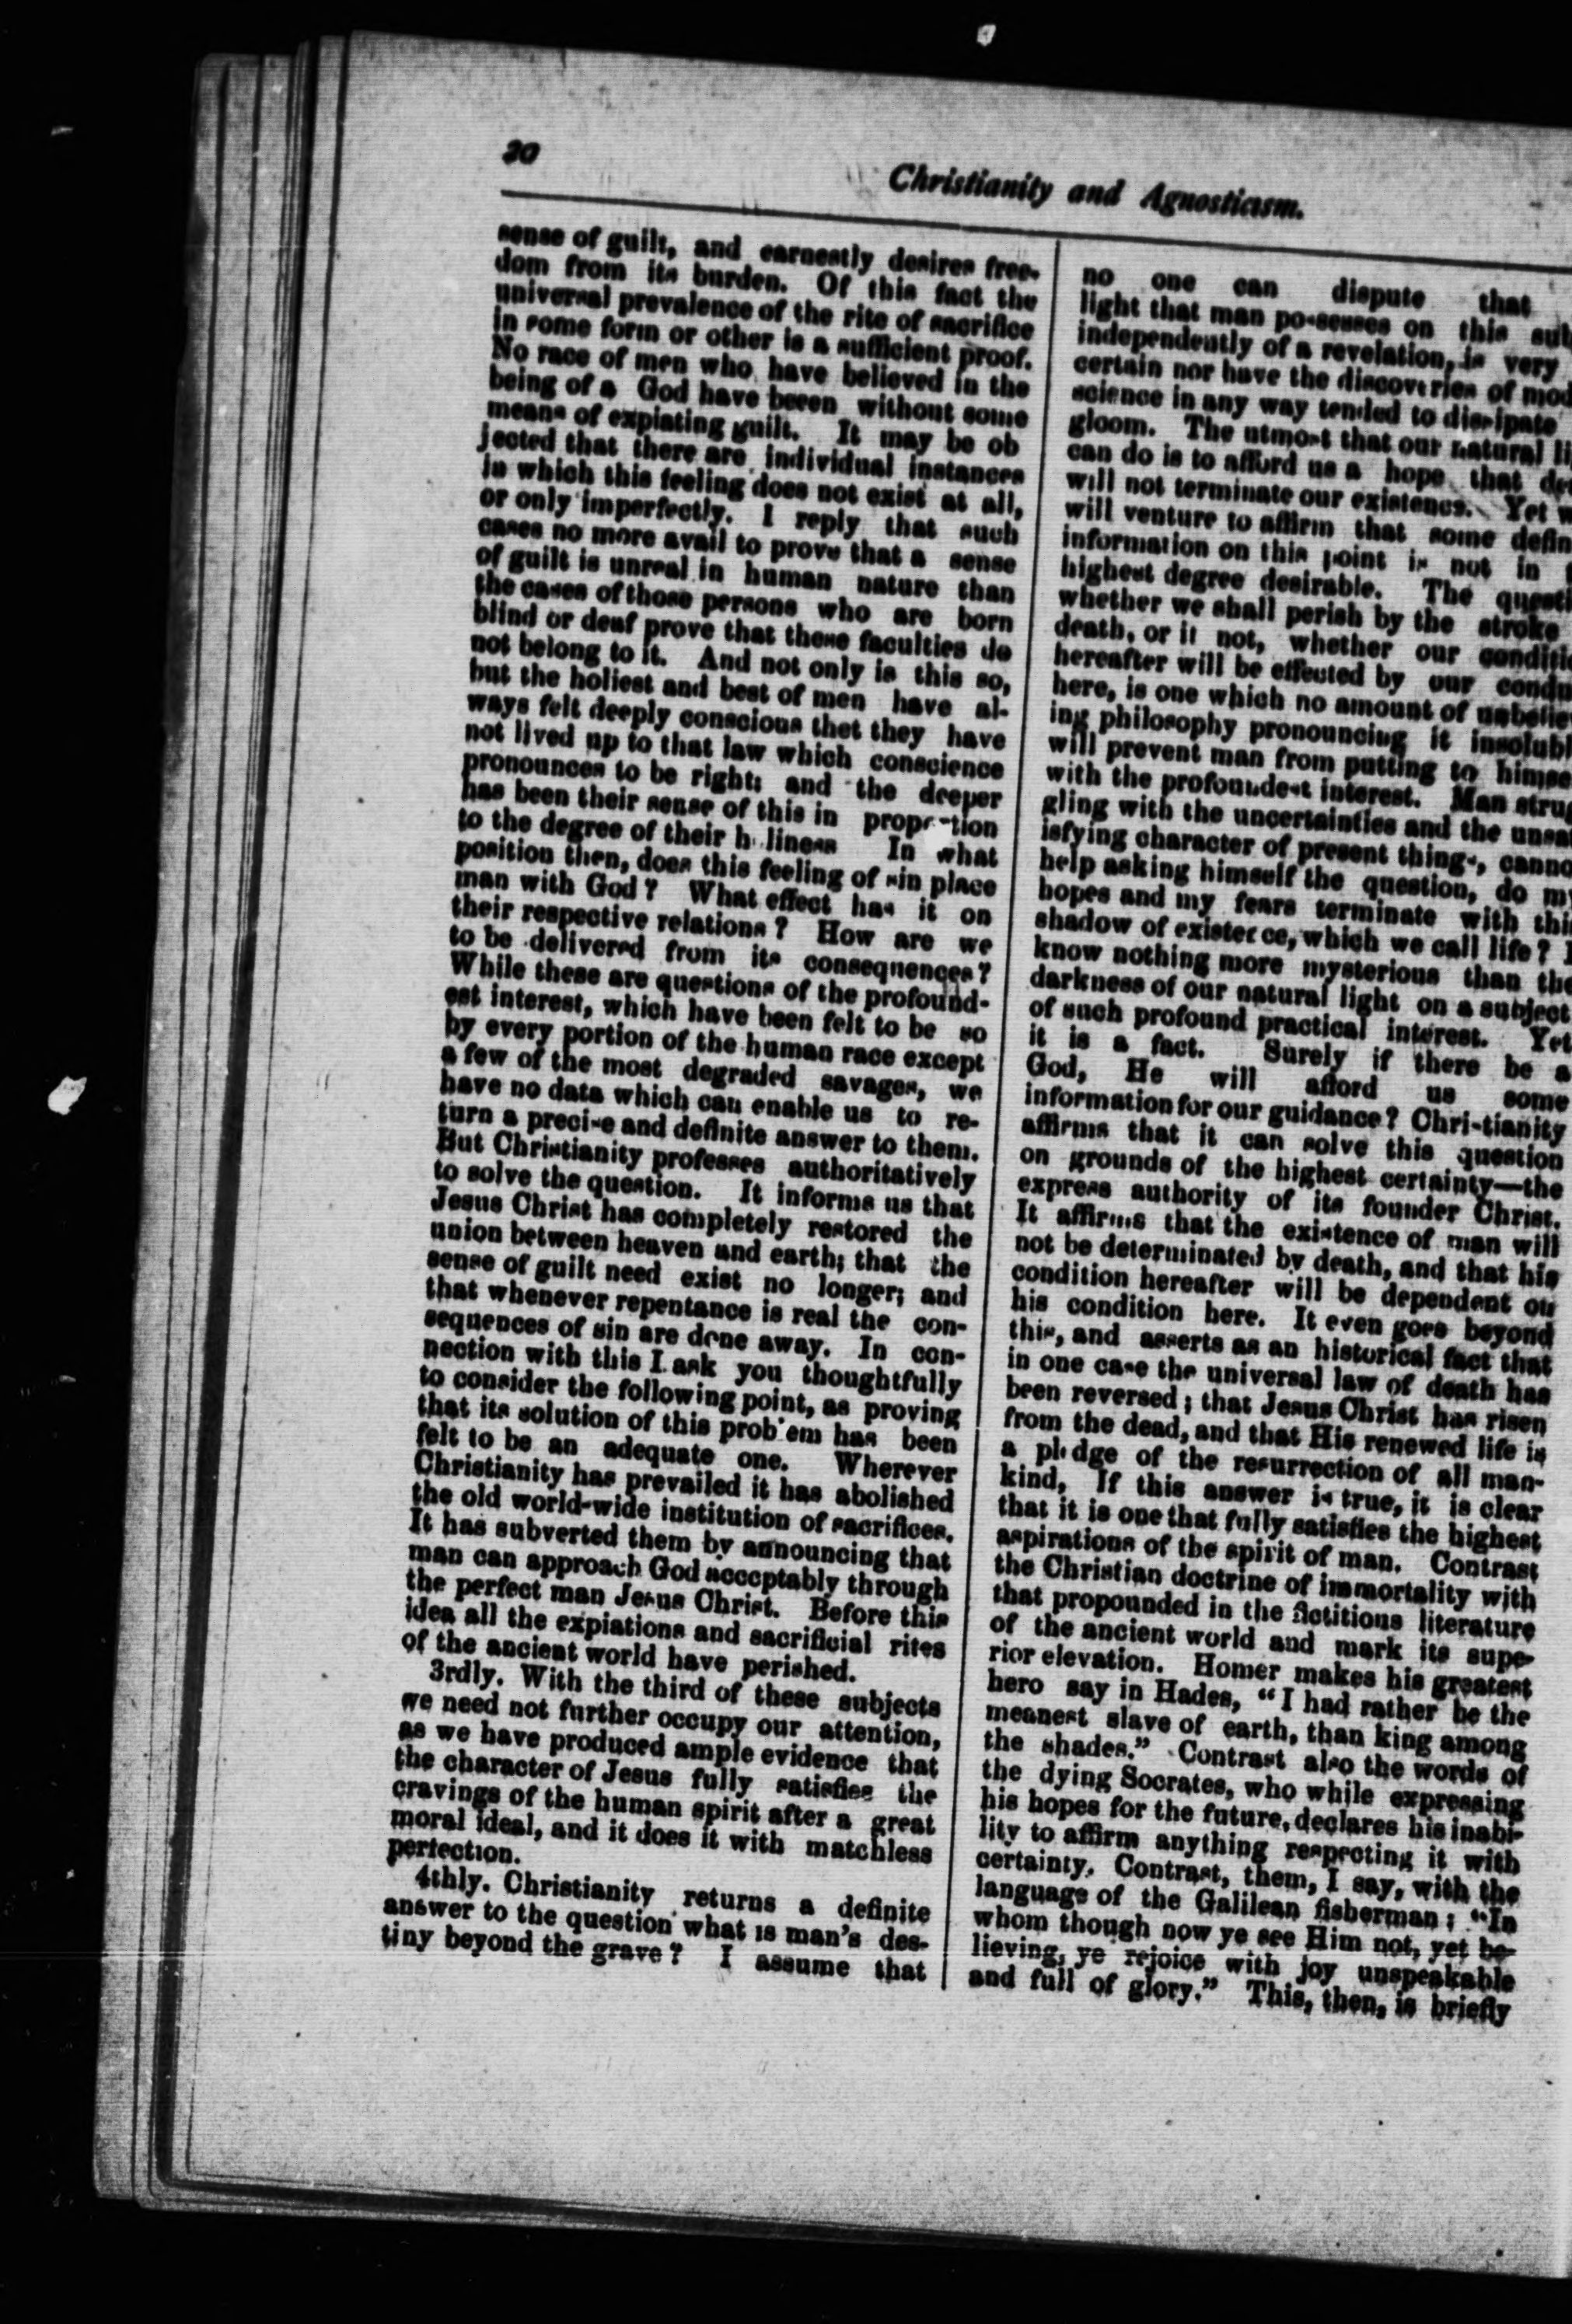 20
Christianity and Agnosticism.
sense of guilt, and earnestly desires free-
dom from its burden. Of this fact the
universal prevalence of the rite of sacrifice
in some form or other is a sufficient proof.
No race of men who have believed in the
being of a God have beeen without some
means of expiating guilt. It may be ob
jected that there are individual instances
in which this feeling does not exist at all,
or only imperfectly. I reply that such
cases no more avail to prove that a sense
of guilt is unreal in human nature than
the cases of those persons who are born
blind or deaf prove that these faculties do
not belong to it. And not only is this so,
but the holiest and best of men have al-
ways felt deeply conscious thet they have
not lived up to that law which conscience
pronounces to be right; and the deeper
has been their sense of this in proportion
to the degree of their holiness In what
position then, does this feeling of sin place
man with God? What effect has it on
their respective relations? How are we
to be delivered from its consequences?
While these are questions of the profound-
est interest, which have been felt to be so
by every portion of the human race except
a few of the most degraded savages, we
have no data which can enable us to re-
turn a precise and definite answer to them.
But Christianity professes authoritatively
to solve the question. It informs us that
Jesus Christ has completely restored the
union between heaven and earth; that the
sense of guilt need exist no longer; and
that whenever repentance is real the con-
sequences of sin are done away. In con-
nection with this I ask you thoughtfully
to consider the following point, as proving
that its solution of this problem has been
felt to be an adequate one. Wherever
Christianity has prevailed it has abolished
the old world-wide institution of sacrifices.
It has subverted them by announcing that
man can approach God acceptably through
the perfect man Jesus Christ. Before this
idea all the expiations and sacrificial rites
of the ancient world have perished.
3rdly. With the third of these subjects
we need not further occupy our attention,
as we have produced ample evidence that
the character of Jesus fully satisfies the
cravings of the human spirit after a great
moral ideal, and it does it with matchless
perfection.
4thly. Christianity returns a definite
answer to the question what is man's des-
tiny beyond the grave? I assume that
no one can dispute that
light that man possesses on this sub
independently of a revelation, is very
certain nor have the discoveries of mod
science in any way tended to dissipate
gloom. The utmost that our natural li
can do is to afford us a hope that de
will not terminate our existence. Yet w
will venture to affirm that some defin
information on this point is not in
highest degree desirable. The questi
whether we shall perish by the stroke
death, or if not, whether our conditi
hereafter will be effected by our condu
here, is one which no amount of unbelie
ing philosophy pronouncing it insolubl
will prevent man from putting to himse
with the profoundest interest. Man strug
gling with the uncertainties and the unsa
isfying character of present things, canno
help asking himself the question, do my
hopes and my fears terminate with thi
shadow of existence, which we call life? I
know nothing more mysterious than the
darkness of our natural light on a subject
of such profound practical interest. Yet
it is a fact. Surely if there be a
God, He will afford us some
information for our guidance? Christianity
affirms that it can solve this question
on grounds of the highest certainty—the
express authority of its founder Christ.
It affirms that the existence of man will
not be determinated by death, and that his
condition hereafter will be dependent on
his condition here. It even goes beyond
this, and asserts as an historical fact that
in one case the universal law of death has
been reversed; that Jesus Christ has risen
from the dead, and that His renewed life is
a pledge of the resurrection of all man-
kind, If this answer is true, it is clear
that it is one that fully satisfies the highest
aspirations of the spirit of man. Contrast
the Christian doctrine of immortality with
that propounded in the fictitious literature
of the ancient world and mark its supe-
rior elevation. Homer makes his greatest
hero say in Hades, "I had rather be the
meanest slave of earth, than king among
the shades." Contrast also the words of
the dying Socrates, who while expressing
his hopes for the future, declares his inabi-
lity to affirm anything respecting it with
certainty. Contrast, them, I say, with the
language of the Galilean fisherman; "In
whom though now ye see Him not, yet be-
lieving, ye rejoice with joy unspeakable
and full of glory." This, then, is briefly